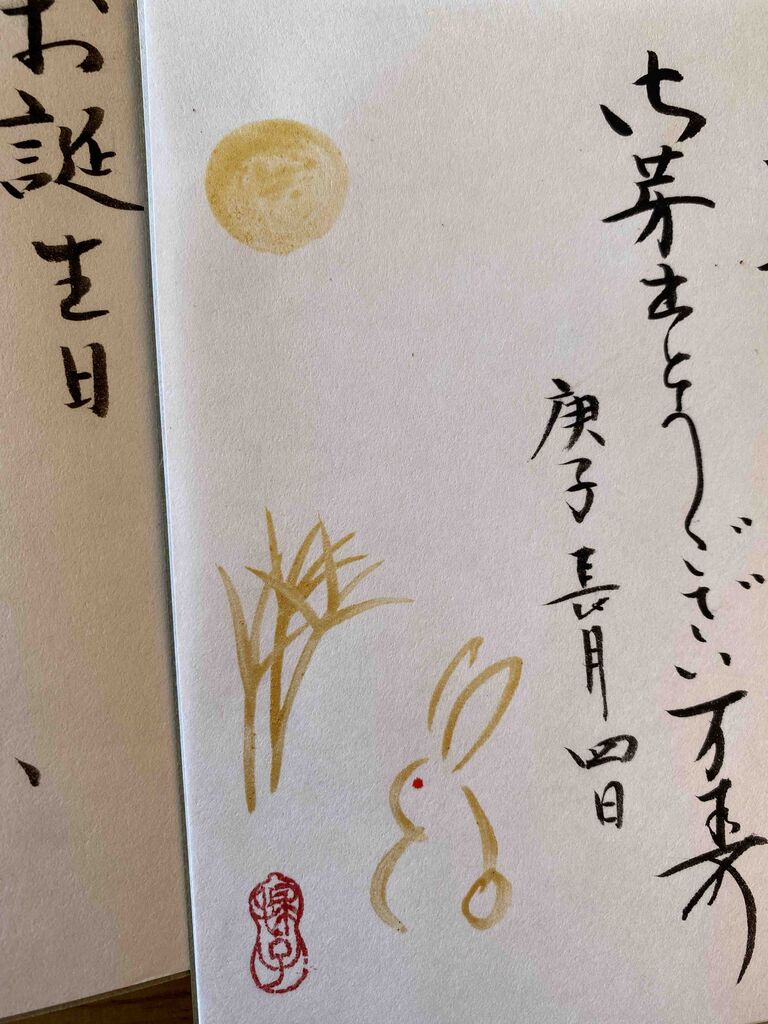 御芽出とうござい万寿
庚子 長月 四日
お誕生日